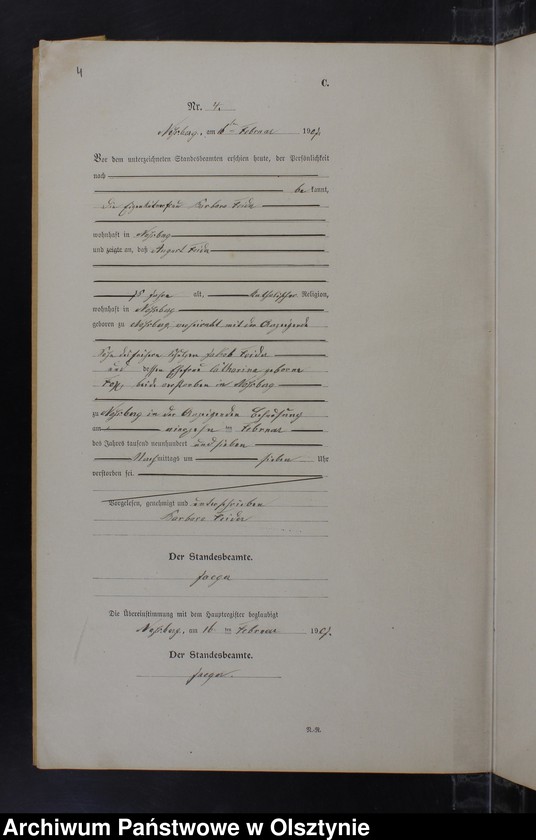 4
C.
Nr. 4.
Noßberg, am 16ten Februar 1907.
Vor dem unterzeichneten Standesbeamten erschien heute, der Persönlichkeit
nach
be kannt,
die Eigenkätnerfrau Barbara
wohnhaft in Noßberg
und zeigte an, daß August
75 Jahre alt, katholischer Religion,
wohnhaft in Noßberg
geboren zu Noßberg, verheirathet mit der Anzeigende
Sohn des Jakob
und dessen Ehefrau Catharina geborene
beide verstorben in Noßberg
zu Noßberg in der Anzeigenden Behausung
am Februar
des Jahres tausend neunhundert und sieben
Nachmittags um sieben Uhr
verstorben sei.
Vorgelesen, genehmigt und unterschrieben
Barbara
Der Standesbeamte.
Jaeger
Die Übereinstimmung mit dem Hauptregister beglaubigt
Noßberg, am 16 ten Februar 1907.
Der Standesbeamte.
Jaeger.
N.-R.
Archiwum Państwowe w Olsztynie